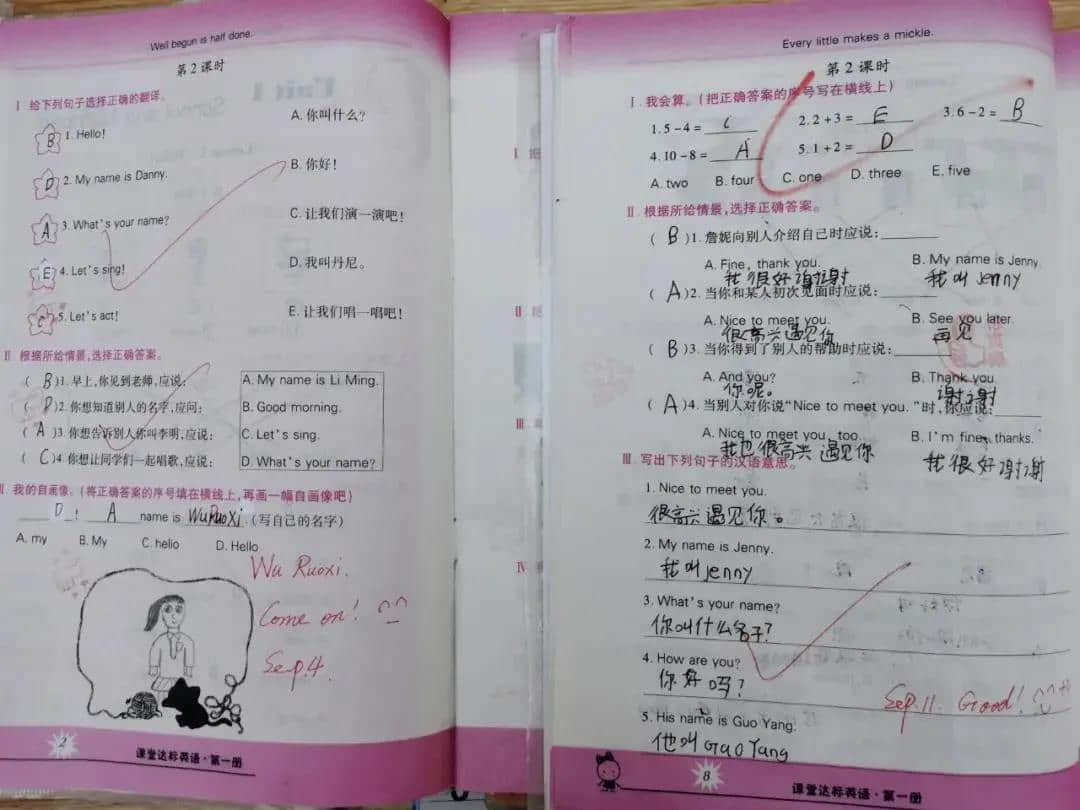 Well begun is half done.
第2课时
Ⅰ 给下列句子选择正确的翻译。
B 1. Hello!
A. 你叫什么?
D 2. My name is Danny.
B. 你好!
A 3. What's your name?
C. 让我们演一演吧!
E 4. Let's sing!
D. 我叫丹尼。
C 5. Let's act!
E. 让我们唱一唱吧!
Ⅱ 根据所给情景,选择正确答案。
( B )1. 早上,你见到老师,应说:
A. My name is Li Ming.
( D )2. 你想知道别人的名字,应问:
B. Good morning.
( A )3. 你想告诉别人你叫李明,应说:
C. Let's sing.
( C )4. 你想让同学们一起唱歌,应说:
D. What's your name?
我的自画像。(将正确答案的序号填在横线上,再画一幅自画像吧)
D ! A name is WuRuoXi.(写自己的名字)
A. my B. My C. hello D. Hello
Wu Ruoxi.
Come on!
Sep.4.
2
课堂达标英语·第一册
Every little makes a mickle.
第2课时
Ⅰ. 我会算。(把正确答案的序号写在横线上)
1. 5-4= C 2. 2+3= E 3. 6-2= B
4. 10-8= A 5. 1+2= D
A. two B. four C. one D. three E. five
Ⅱ. 根据所给情景,选择正确答案。
( B )1. 詹妮向别人介绍自己时应说:
A. Fine, thank you. B. My name is Jenny.
我很好谢谢 我叫Jenny
( A )2. 当你和某人初次见面时应说:
A. Nice to meet you. B. See you later.
很高兴遇见你 再见
( B )3. 当你得到了别人的帮助时应说:
A. And you? B. Thank you.
你呢。 谢谢
( A )4. 当别人对你说“Nice to meet you. ”时,你应说:
A. Nice to meet you, too. B. I'm fine, thanks.
我也很高兴遇见你 我很好谢谢
Ⅲ. 写出下列句子的汉语意思。
1. Nice to meet you.
很高兴遇见你。
2. My name is Jenny.
我叫jenny
3. What's your name?
你叫什么名子?
4. How are you?
你好吗?
Sep.11. Good!
5. His name is Guo Yang.
他叫Gao Yang
8
课堂达标英语·第一册